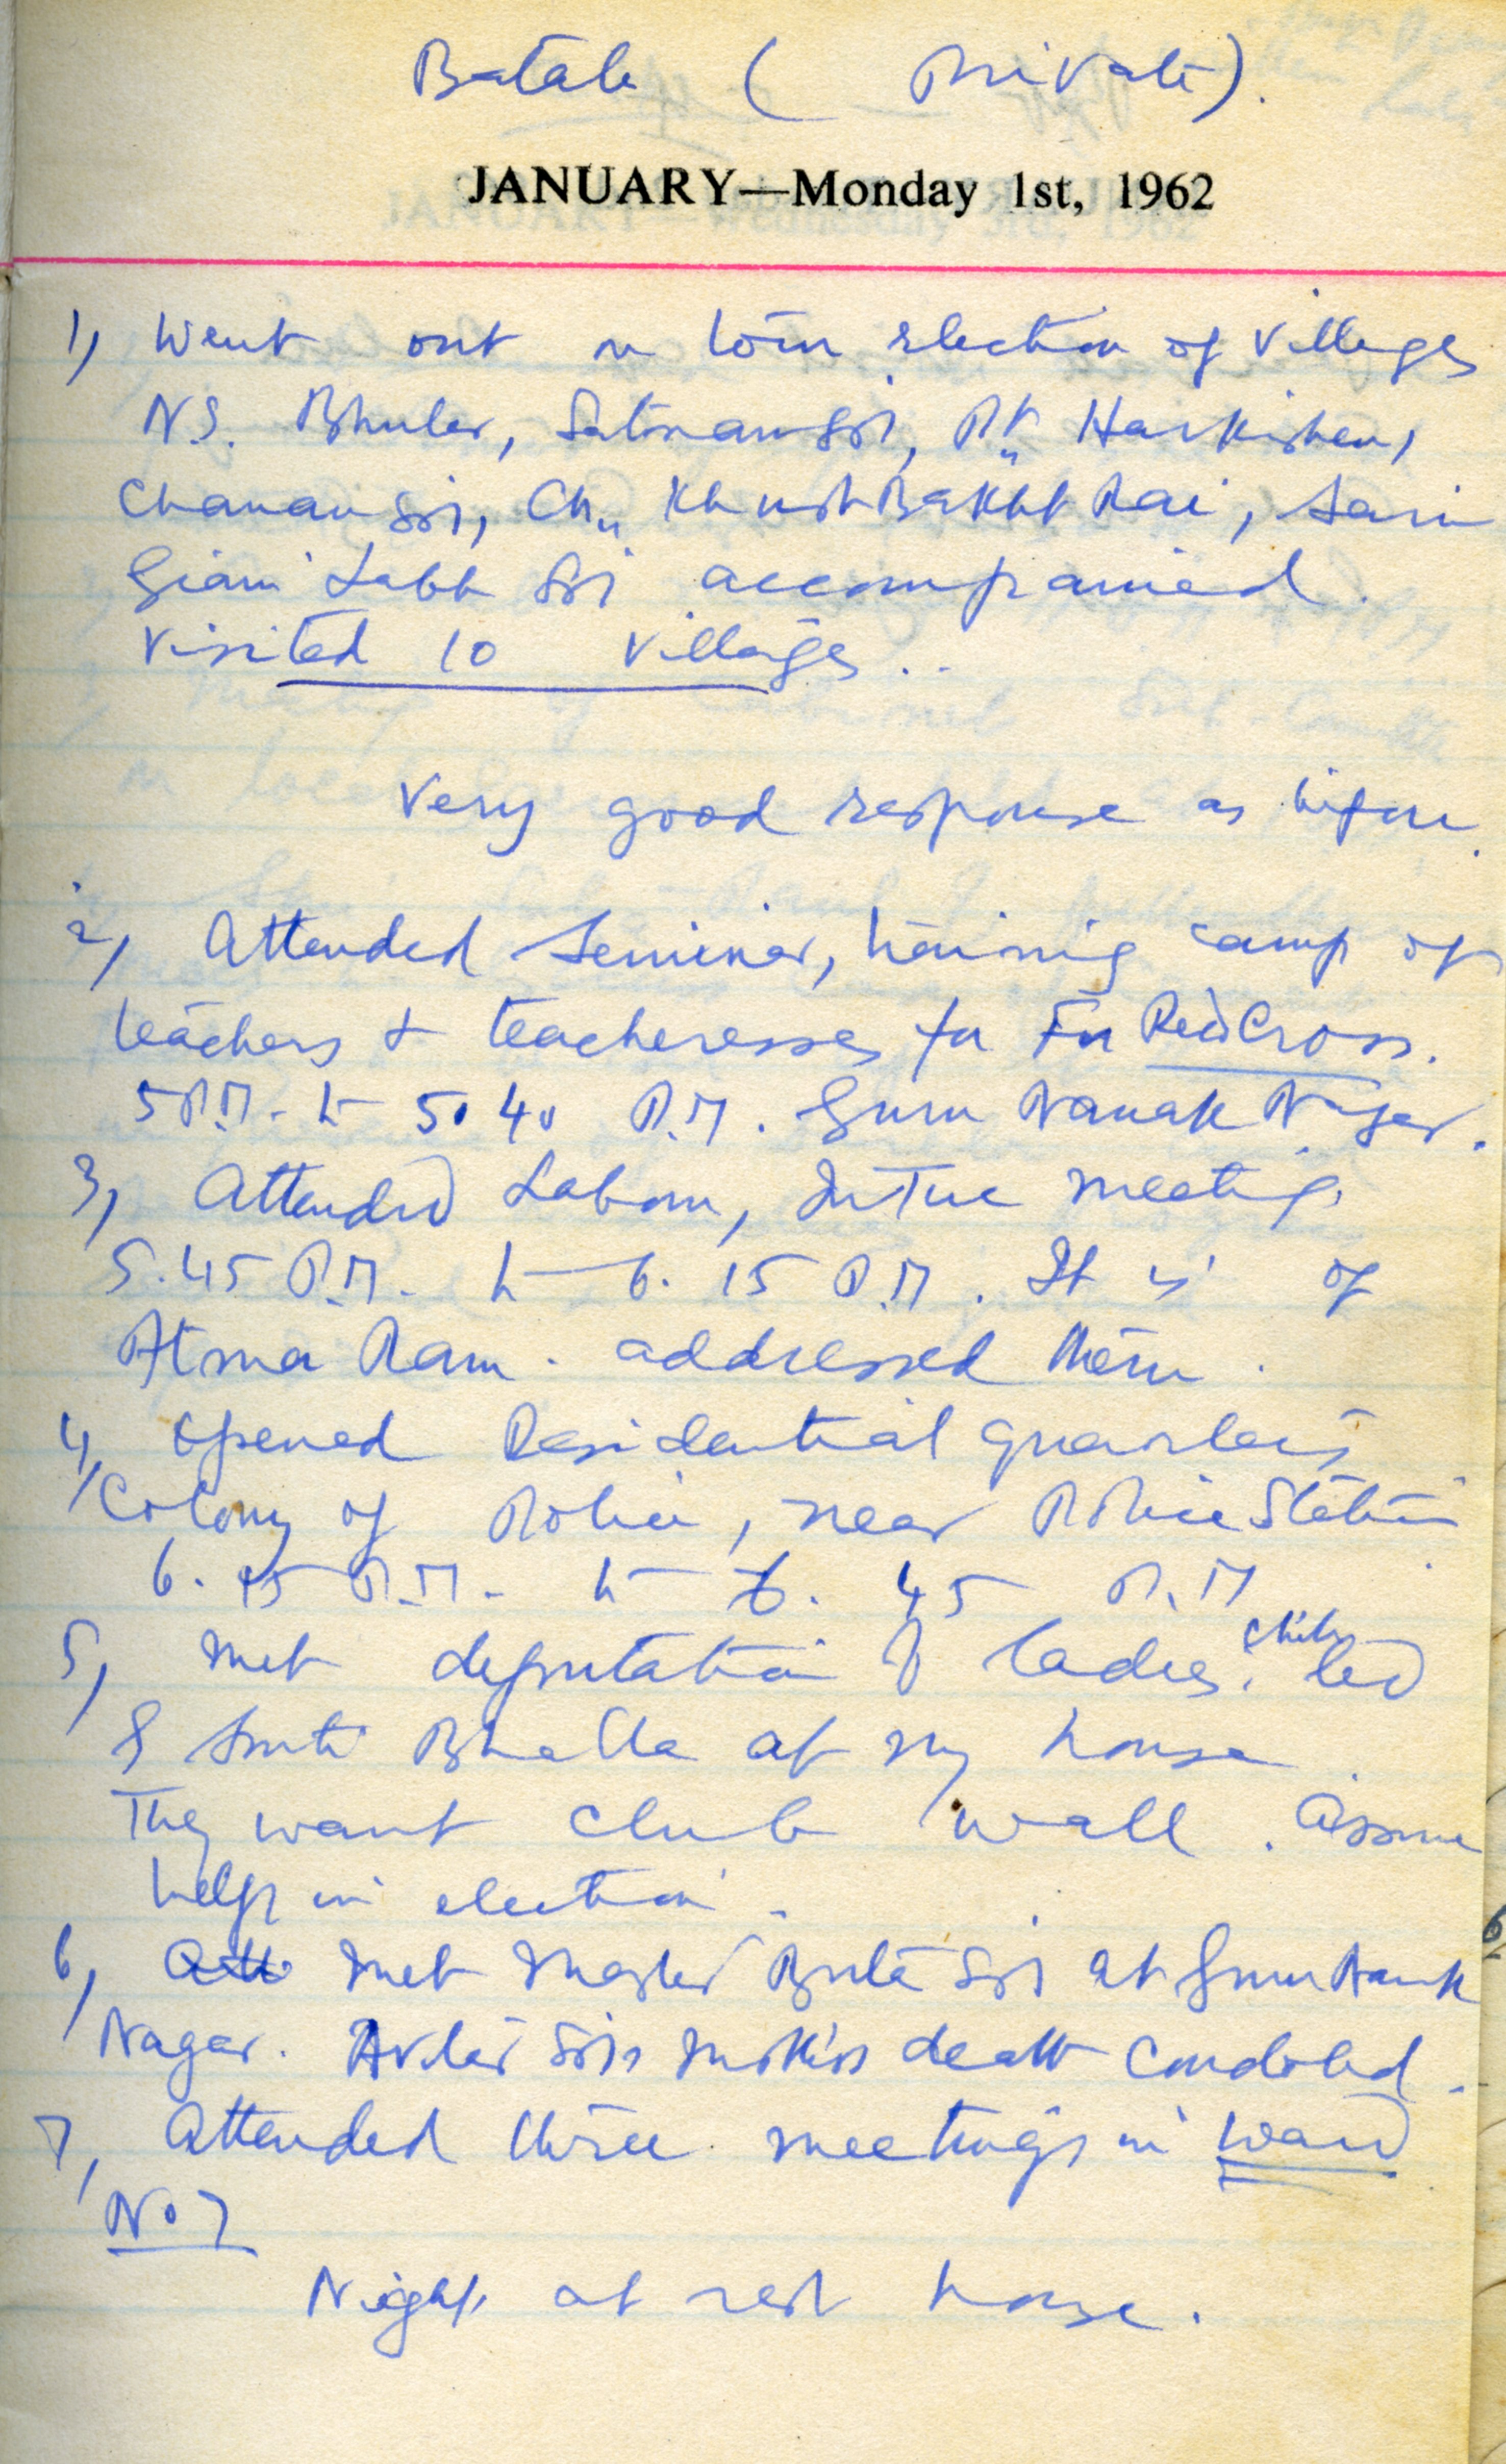 Batala ( Private).
JANUARY—Monday 1st, 1962
1, Went out on tour election of Villages
N.S. Bhuler, Satnam Sir, Pt. Harkishen,
Chanan Sir, Ch. Khushbakht Rai,
Giani Labh Sir accompanied.
Visited 10 Villages..
Very good response as before.
2, Attended Seminar, training camp of
teachers & teacheresses for Red Cross.
5 P.M. to 5.40 P.M. Guru Nanak Nagar.
3, Attended Labour, INTUC meeting
5.45 P.M. to 6.15 P.M. It is of
Atma Ram. addressed them.
4, Opened Residential quarters
Colony of Police, near Police Station
6.15 P.M. to 6.45 P.M
5, Met deputation of ladies club led
by Smti Bhalla at my house.
They want club wall. Assure
help in election.
6, Met Master Buta Sir at Guru Nanak
Nagar. Avtar Sir's Mother's death Condoled.
7, Attended three meetings in Ward
No 7
Night at rest house.